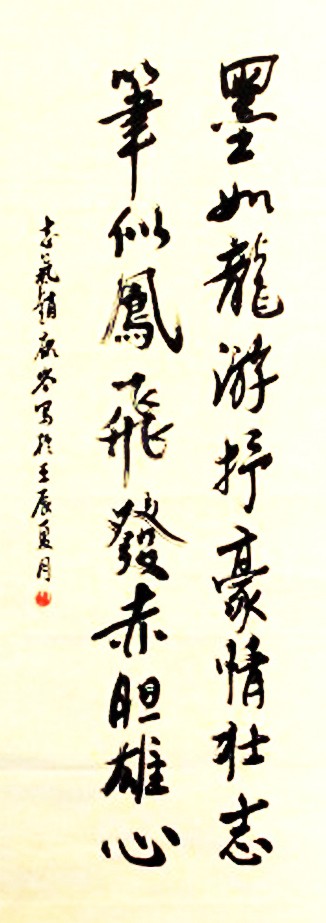 墨如龍游抒豪情壯志
筆似鳳飛發赤胆雄心
写於壬辰夏月